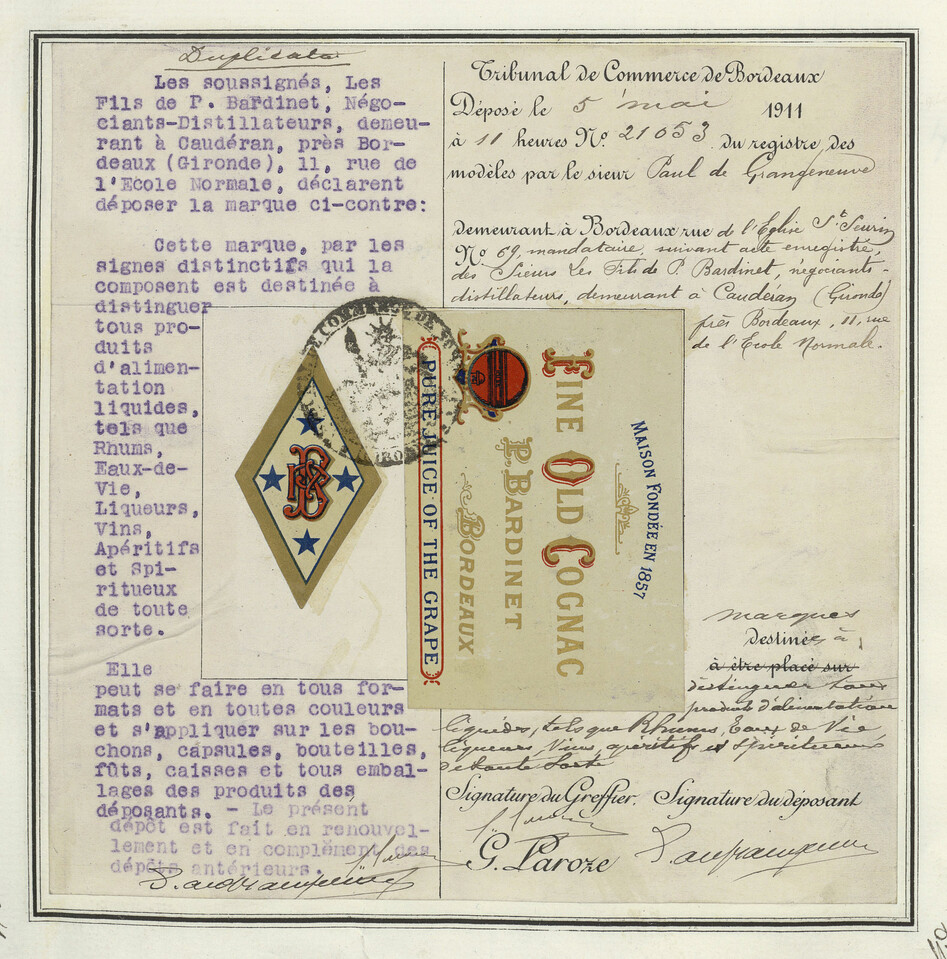 Duplicata
Les soussignés, Les
Fils de P. Bardinet, Négo-
ciants-Distillateurs, demeu-
rant à Caudéran, près Bor-
deaux (Gironde), 11, rue de
l'Ecole Normale, déclarent
déposer la marque ci-contre:
Cette marque, par les
signes distinctifs qui la
composent est destinée à
distinguer
tous pro-
duits
d'alimen-
tation
liquides,
tels que
Rhums,
Eaux-de-
Vie,
Liqueurs,
Vins,
Apéritifs
et Spi-
ritueux
de toute
sorte.
Elle
peut se faire en tous for-
mats et en toutes couleurs
et s'appliquer sur les bou-
chons, capsules, bouteilles,
fûts, caisses et tous embal-
lages des produits des
déposants. - Le présent
dépôt est fait en renouvel-
lement et en complément des
dépôts antérieurs.
Tribunal de Commerce de Bordeaux
Déposé le 5 mai 1911
à 11 heures No. 21053 du registre des
modèles par le sieur Paul de Grangeneuve
demeurant à Bordeaux rue de l'Eglise St Seurin
No 69, mandataire, suivant acte enregistré,
des Sieurs Les Fils de P. Bardinet, négociants-
distillateurs, demeurant à Caudéran (Gironde)
près Bordeaux, 11, rue
de l'Ecole Normale.
MAISON FONDÉE EN 1857
FINE OLD COGNAC
P. BARDINET
BORDEAUX
PURE JUICE OF THE GRAPE
marques
destinée à
à être placé sur
distinguer tous
produits d'alimentation
liquides, tels que Rhums, Eaux de Vie
liqueurs Vins, apéritifs et Spiritueux
de toute Sorte
Signature du Greffier. Signature du déposant
G. Laroze